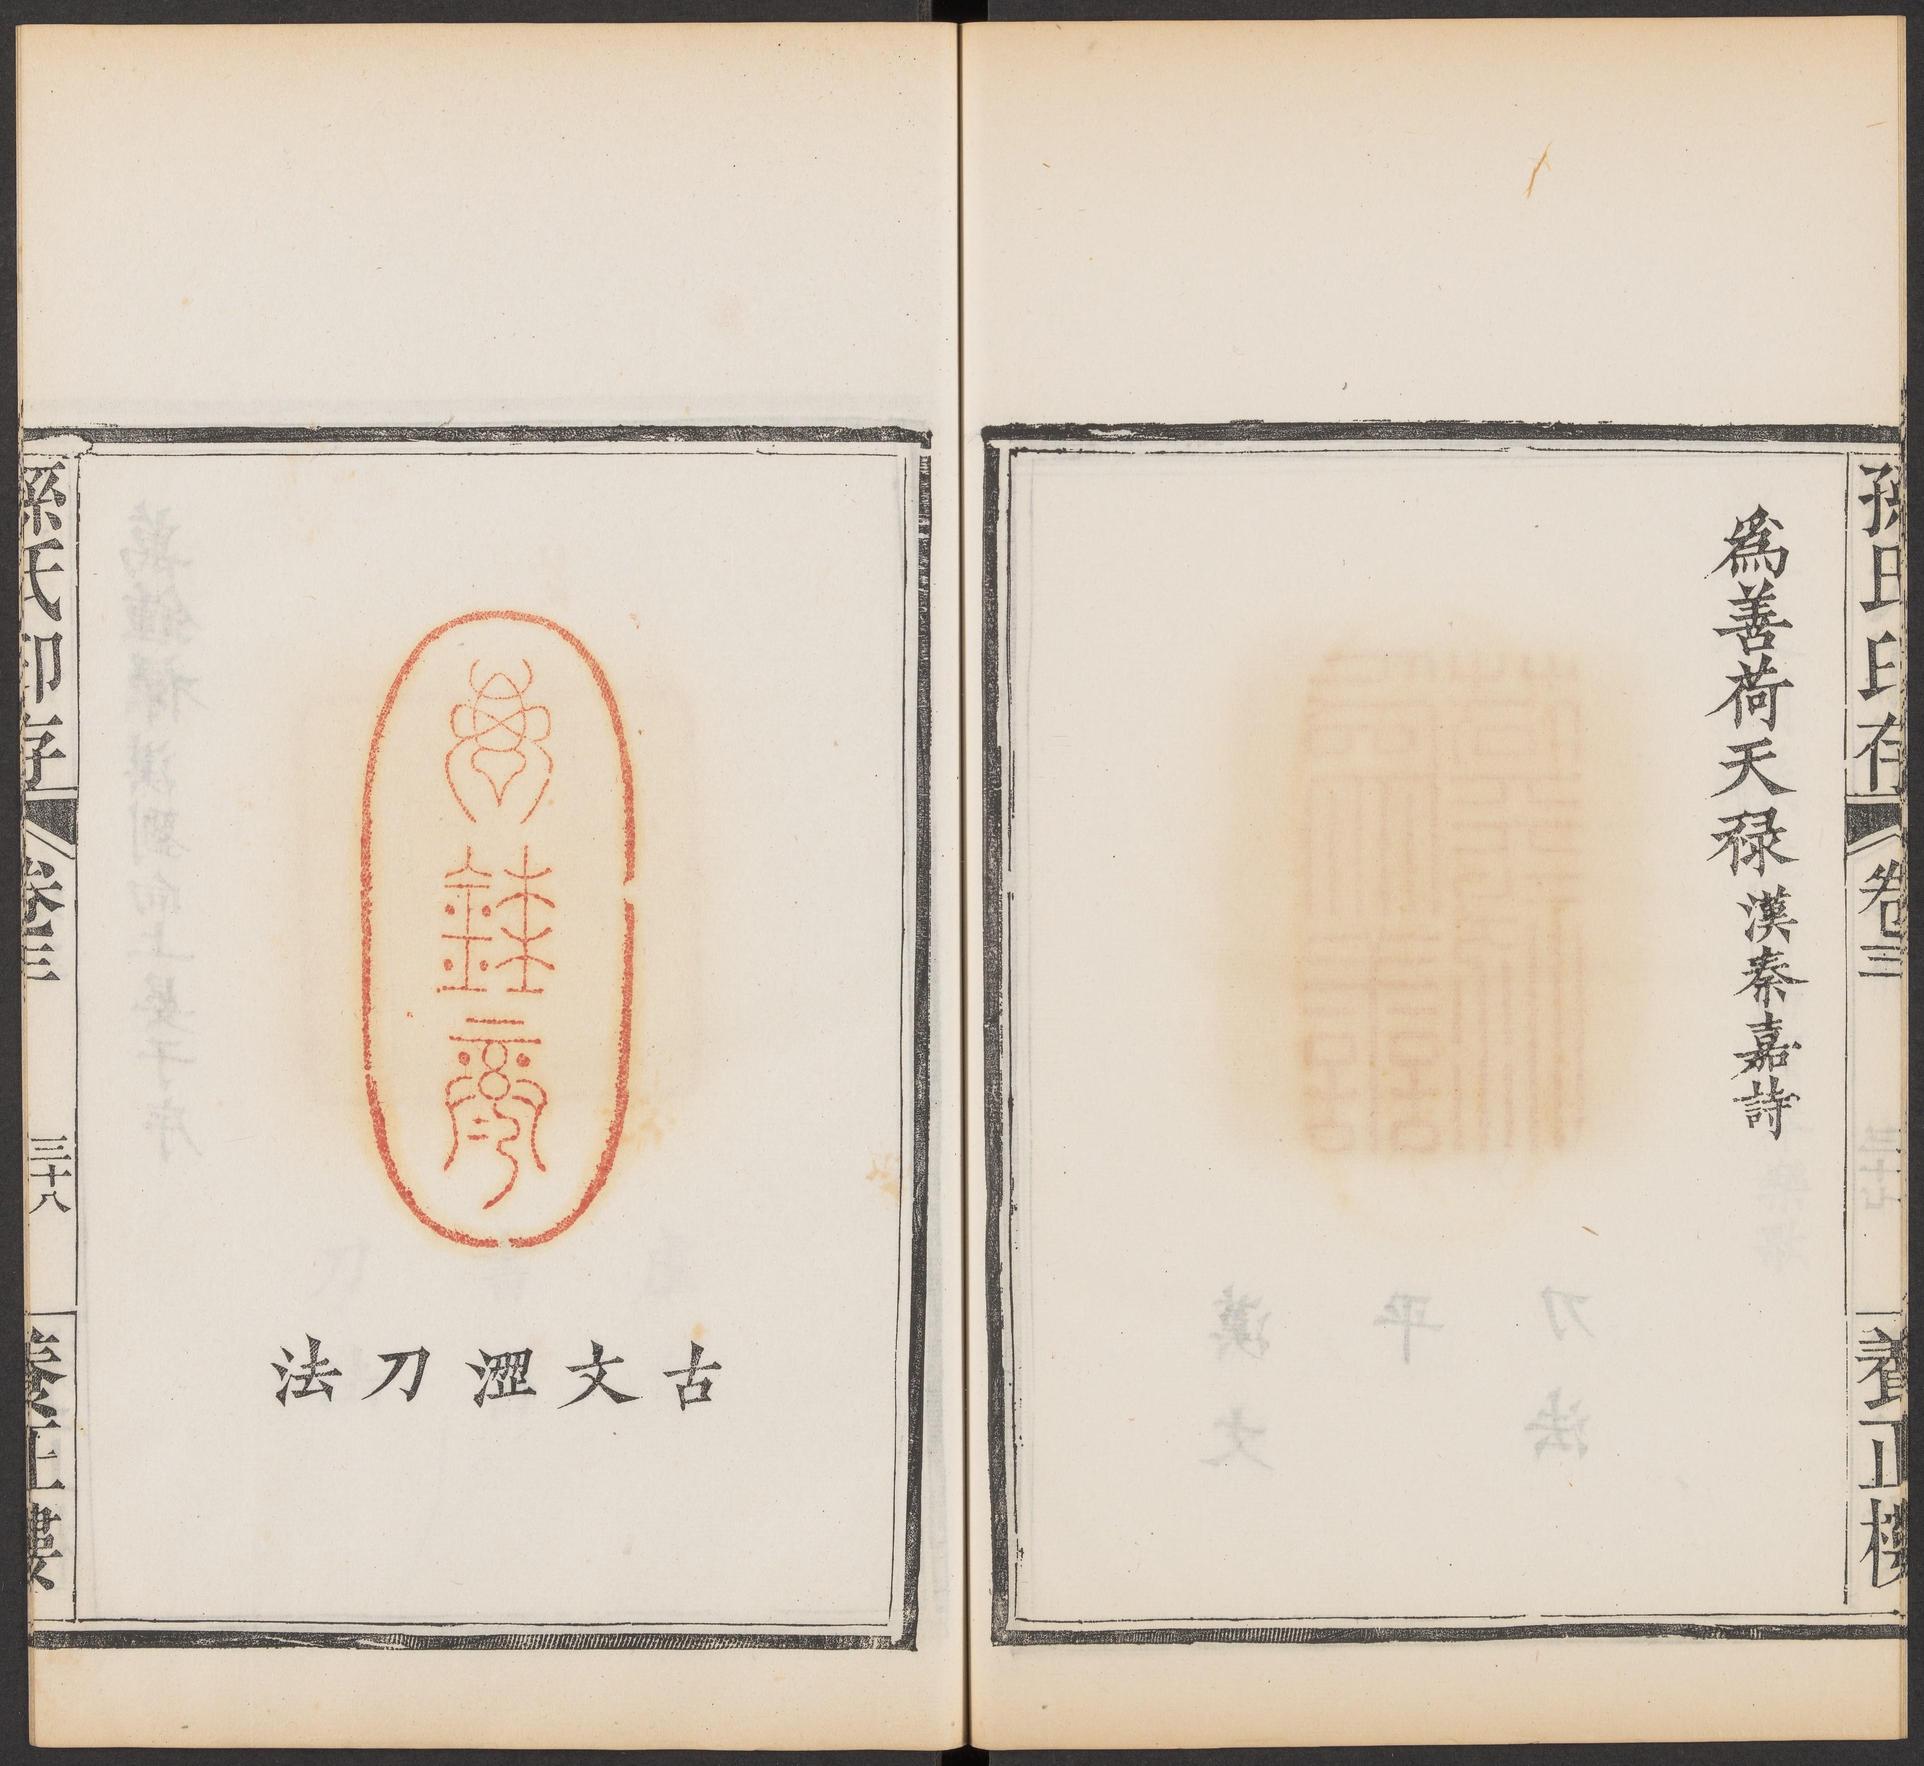 孫氏印存
卷三
養正樓
為善荷天祿漢秦嘉詩
古文澀刀法
孫氏印存
卷三
三十八
養正樓